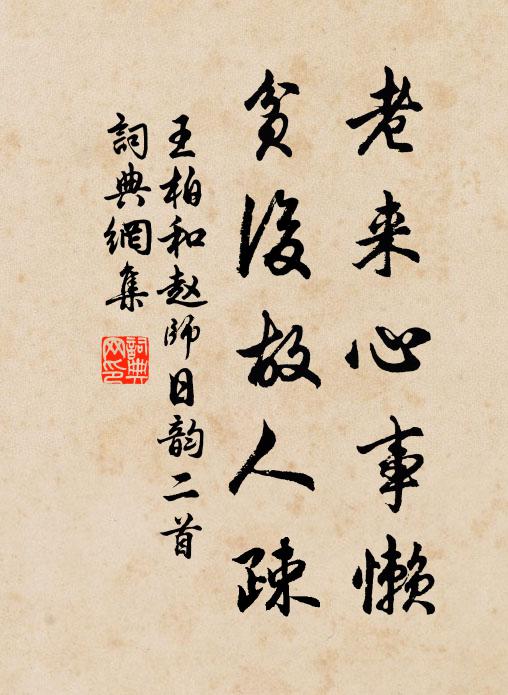 老来心事懒
貧後故人疎
王柏和赵师日韵二首
詞典網集
詞典网印